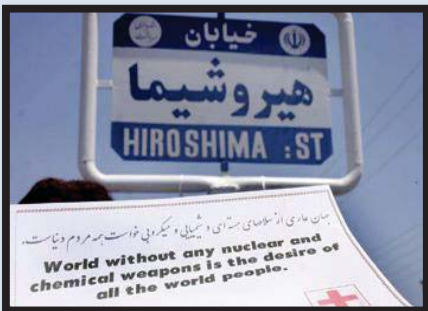 خیابان
هیروشیما
HIROSHIMA : ST
جهان عاری از سلاحهای هسته ای و شیمیایی و میکروبی خواست همه مردم دنیاست.
World without any nuclear and
chemical weapons is the desire of
all the world people.